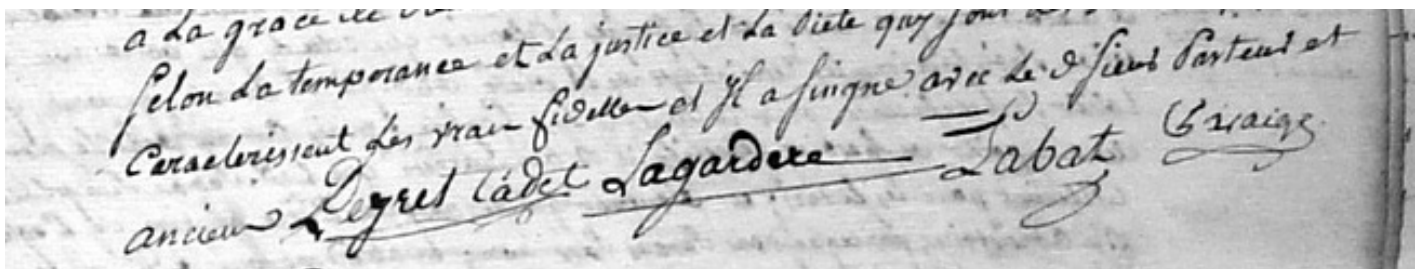 a La grace
selon La temperance et La justice et La Piete quy sont
Caracterissent Les vrais fidelles et Il a singne avec Le d. sieur Pasteur et
anciens Peyret Cadet Lagardere Labat